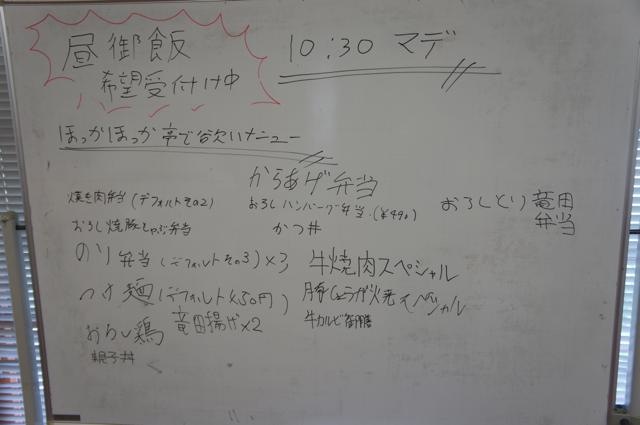 昼御飯
希望受付け中
10:30 マデ
ほっかほっか亭で欲しいメニュー
からあげ弁当
焼き肉弁当(デフォルトその2)
おろしハンバーグ弁当(¥490)
おろしとり竜田
弁当
おろし焼豚しゃぶ弁当
かつ丼
のり弁当(デフォルトその3)×3
牛焼肉スペシャル
つけ麺(デフォルト
豚しょうが焼きスペシャル
おろし鶏 竜田揚げ×2
牛カルビ
親子丼